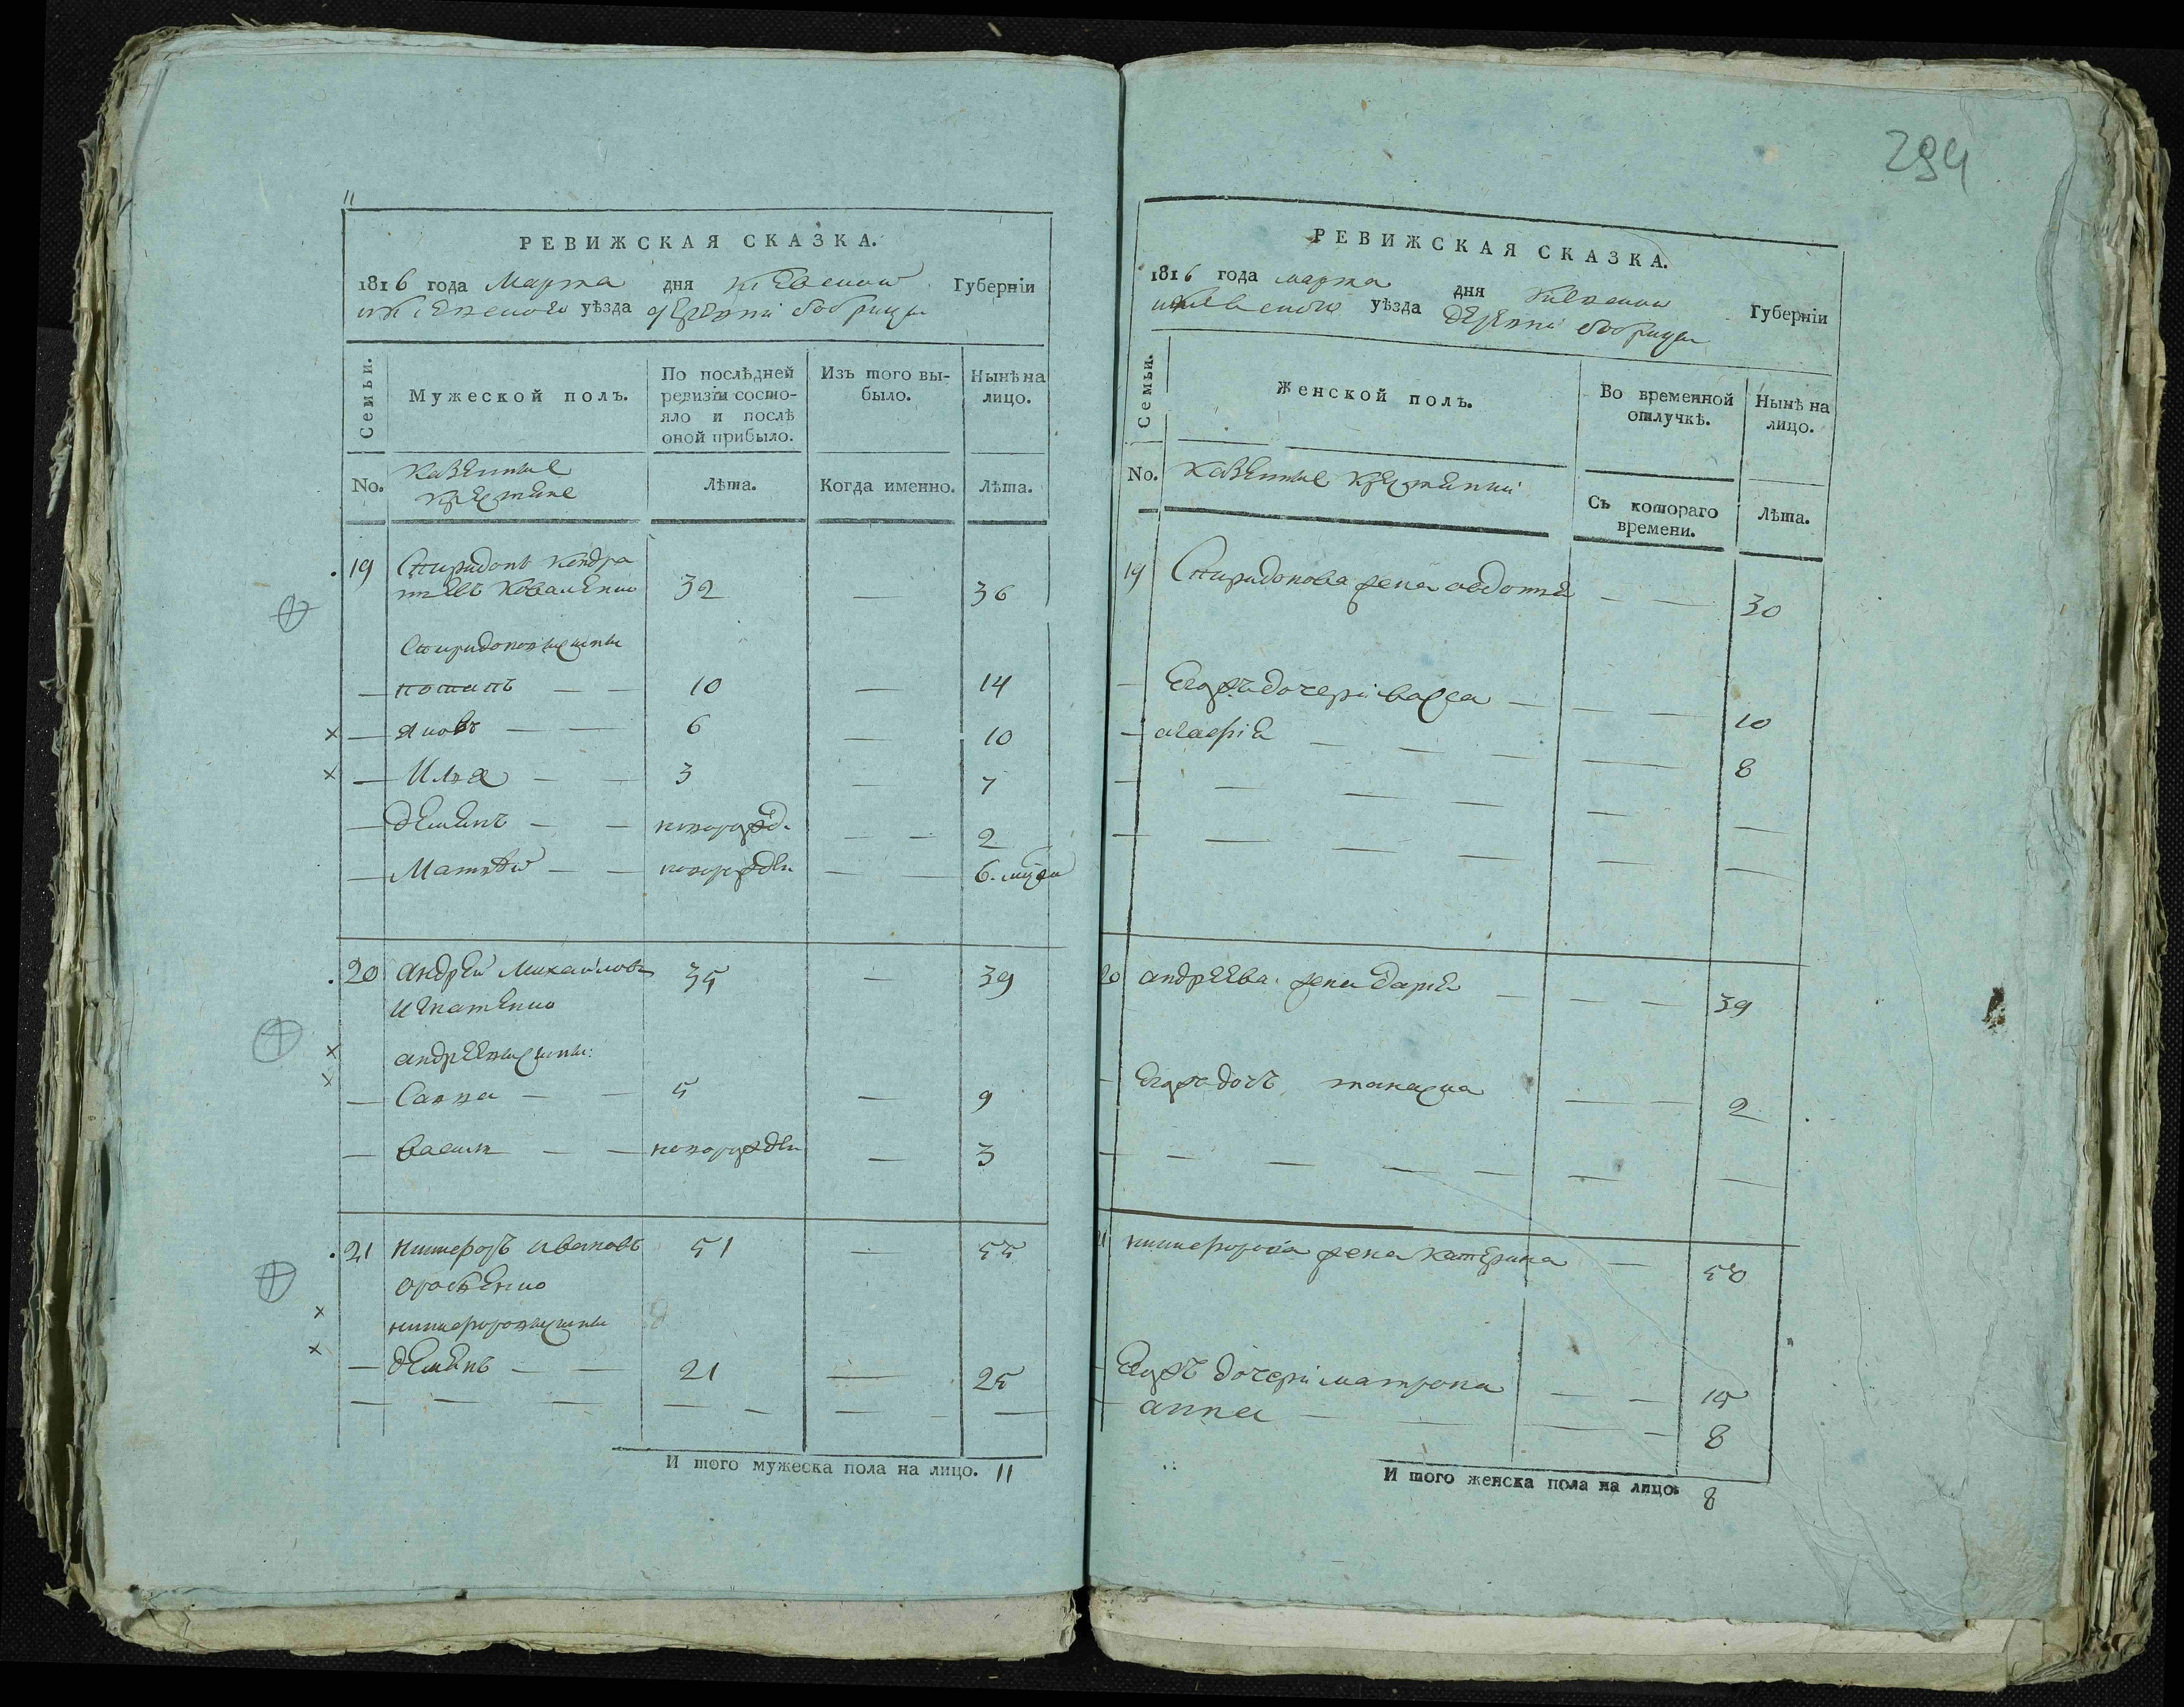 294
11
РЕВИЖСКАЯ СКАЗКА.
1816 года Марта дня Киевской Губерніи
и Киевского уѣзда деревни бобрици
Семьи.
Мужеской полъ.
По послѣдней ревизіи состояло и послѣ оной прибыло.
Изъ того выбыло.
Нынѣ на лицо.
No.
Казенные
крестяне
Лѣта.
Когда именно.
Лѣта.
19 Спиридонъ Кондра 32 — 36
тиевъ Коваленко
Спиридоновы сыны
— потапъ — — 10 — 14
— яковъ — — 6 — 10
— Илья — — 3 — 7
— демянъ — — новорожд. — — 2
— Матвѣй — — новорожден — — 6.
20 андрей Михайловъ 35 — 39
игнатенко
андреевы сыны:
— Савва — — 5 — 9
— василь — — новорожден — 3
21 никифоръ ивановъ 51 — 55
никифоровы сыны
— демянъ — — 21 — 25
И того мужеска пола на лицо. 11
РЕВИЖСКАЯ СКАЗКА.
1816 года марта дня Киевской Губерніи
и Киевского уѣзда деревни бобрици
Семьи.
Женской полъ.
Во временной отлучкѣ.
Нынѣ на лицо.
No.
Казенные крестянки
Съ котораго времени.
Лѣта.
19 Спиридонова жена авдотия — — 30
— Егожъ дочери васса — — — 10
— агафия — — — — 8
20 андреева жена дария — — — 39
— Егожъ дочъ — — 2
21 никифорова жена катерина — 50
Егожъ дочери матрона — — 15
анна — — — — 8
И того женска пола на лицо. 8